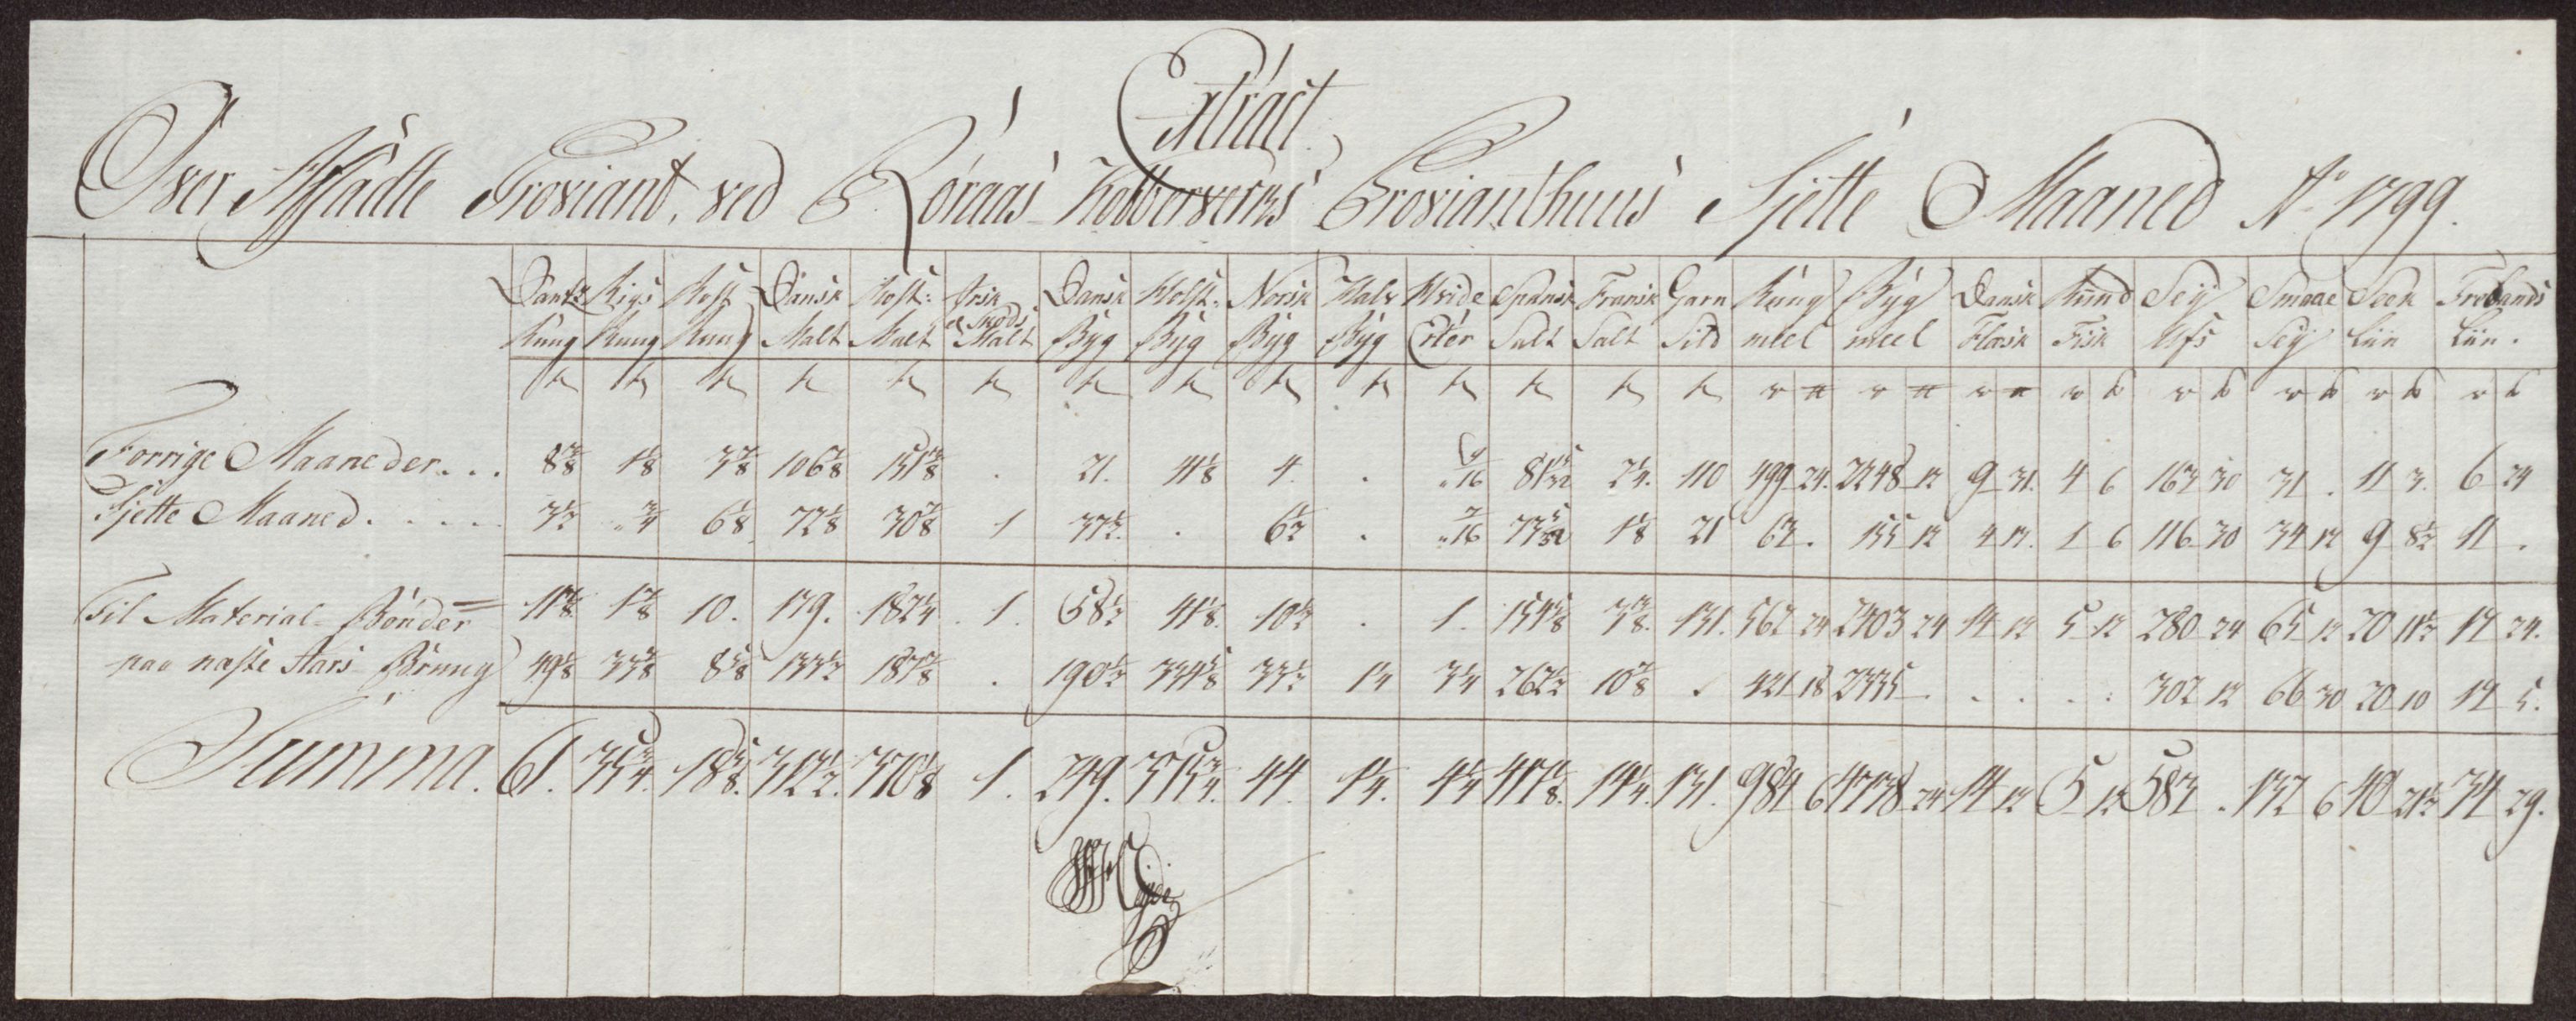 Extract
Over Afsadte Proviant, ved Röraas Kobberverks Provianthuus Sjette Maaned Ao 1799.
Dantz Rug | Rigs Rug | Rost Rug | Dansk Malt | Holst: Malt | Irsk el Skods Malt | Dansk Byg | Holst: Byg | Norsk Byg | Malv Byg | Hvide Erter | Spansk Salt | Fransk Salt | Garn Sild | Rüng meel | Byg meel | Dansk Flæsk | Rund Fisk | Seÿ Ufs | Smaae Seÿ | Seek Liin | Frolands Liin.
Forrige Maaneder... | 8 | 1 1/8 | 3 7/8 | 106 7/8 | 151 3/8 | . | 21. | 41 1/8 | 4 | . | 9/16 | 81 15/32 | 2 1/4. | 110 | 499 24. | 2248 12 | 9 31. | 4 6 | 163 30 | 31 . | 11 3. | 6 24
Sjette Maaned..... | 3 1/2 | 3/4 | 6 1/8 | 72 1/8 | 30 7/8 | 1 | 37 1/2. | . | 6 1/2 | . | 7/16 | 73 5/32 | 1 1/8 | 21 | 63. | 155 12 | 4 13. | 1 6 | 116 30 | 34 12 | 9 8 1/2 | 11 .
Til Material Bönder | 11 7/8 | 1 7/8 | 10. | 179. | 182 1/4 | 1. | 58 1/2 | 41 1/8. | 10 1/2 | . | 1. | 154 5/8 | 3 3/8. | 131. | 562 24 | 2403 24 | 14 12 | 5 12 | 280 24 | 65 12 | 20 11 1/2 | 17 24.
paa næste Aars Brüug | 49 1/8 | 33 7/8 | 8 5/8 | 133 1/2 | 187 7/8 | . | 190 1/2 | 334 5/8 | 33 1/2 | 1 1/4 | 3 1/4 | 262 1/2 | 10 7/8 | . | 421 18 | 2335 | . . | . . | 302 12 | 66 30 | 20 10 | 17 5.
Summa. | 61. | 35 3/4. | 18 5/8. | 312 1/2. | 370 1/8 | 1. | 249. | 375 3/4. | 44. | 1 1/4. | 4 1/4 | 417 1/8. | 14 1/4. | 131. | 984 6 | 4738 24 | 14 12 | 5 12 | 583 . | 132 6 | 40 21 1/2 | 34 29.